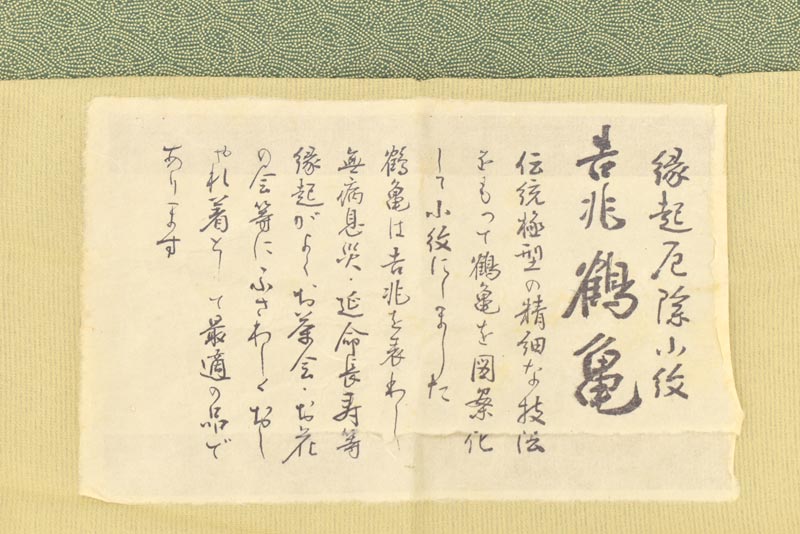 縁起厄除小紋
吉兆鶴亀
伝統極型の精細な技法
をもって鶴亀を図案化
して小紋にしました
鶴亀は吉兆を表わし
無病息災・延命長寿等
縁起がよくお茶会・お花
の会等にふさわしくおし
ゃれ着として最適の品で
あります